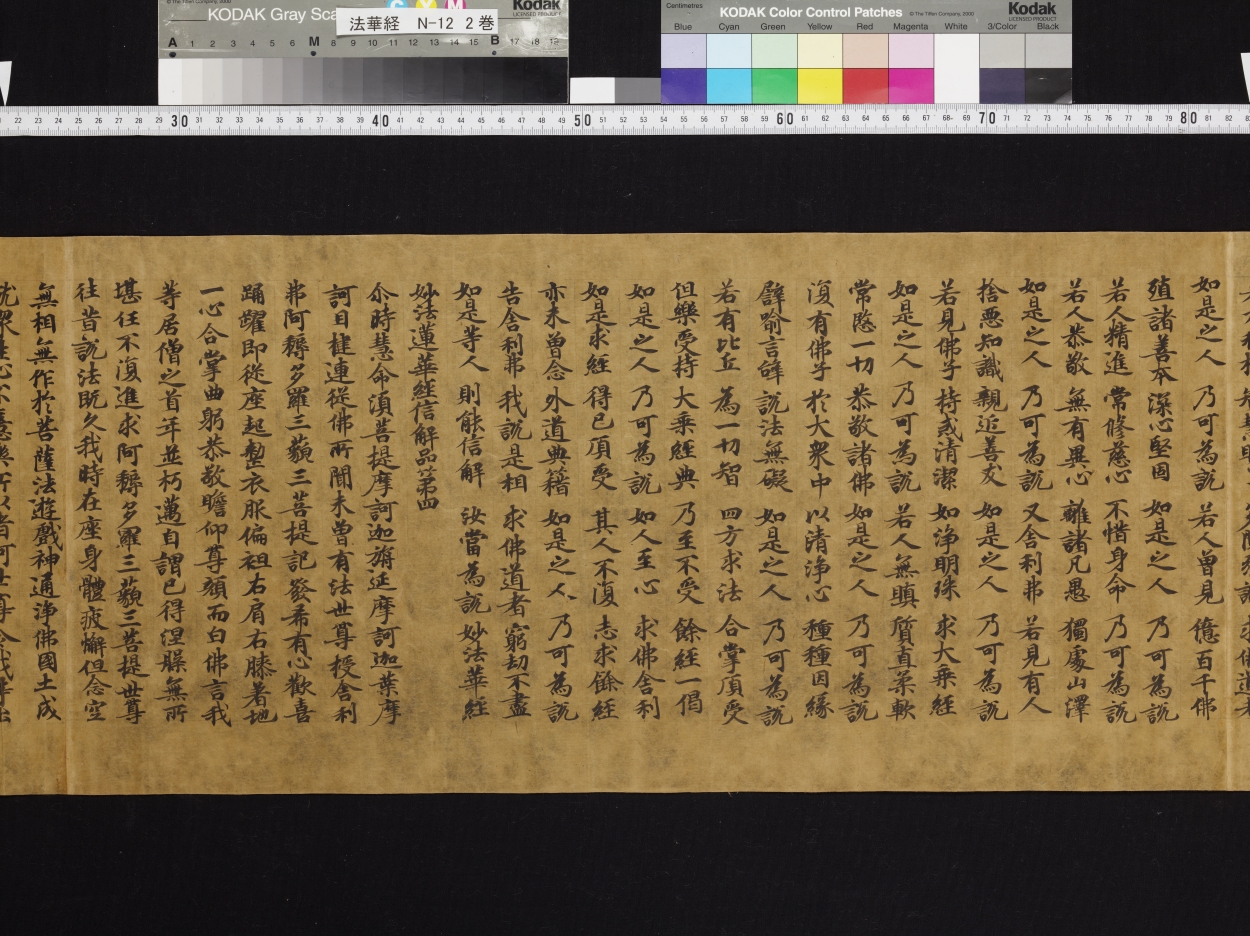 KODAK Gray Scale
© The Tiffen Company, 2000
Kodak
LICENSED PRODUCT
C Y M
法華経 N-12 2巻
A 1 2 3 4 5 6 M 8 9 10 11 12 13 14 15 B 17 18 19
Centimetres
KODAK Color Control Patches
© The Tiffen Company, 2000
Kodak
LICENSED PRODUCT
Blue Cyan Green Yellow Red Magenta White 3/Color Black
22 23 24 25 26 27 28 29 30 31 32 33 34 35 36 37 38 39 40 41 42 43 44 45 46 47 48 49 50 51 52 53 54 55 56 57 58 59 60 61 62 63 64 65 66 67 68 69 70 71 72 73 74 75 76 77 78 79 80 81 82
如是之人 乃可為說 若人曾見 億百千佛
殖諸善本 深心堅固 如是之人 乃可為說
若人精進 常修慈心 不惜身命 乃可為說
若人恭敬 無有異心 離諸凡愚 獨處山澤
如是之人 乃可為說 又舍利弗 若見有人
捨惡知識 親近善友 如是之人 乃可為說
若見佛子 持戒清潔 如淨明珠 求大乘經
如是之人 乃可為說 若人無瞋 質直柔軟
常愍一切 恭敬諸佛 如是之人 乃可為說
復有佛子 於大衆中 以清淨心 種種因緣
譬喻言辞 說法無礙 如是之人 乃可為說
若有比丘 為一切智 四方求法 合掌頂受
但樂受持 大乘經典 乃至不受 餘經一偈
如是之人 乃可為說 如人至心 求佛舍利
如是求經 得已頂受 其人不復 志求餘經
亦未曾念 外道典籍 如是之人 乃可為說
告舍利弗 我說是相 求佛道者 窮劫不盡
如是等人 則能信解 汝當為說 妙法華經
妙法蓮華經信解品第四
尒時慧命湏菩提摩訶迦旃延摩訶迦葉摩
訶目揵連從佛所聞未曾有法世尊授舍利
弗阿耨多羅三藐三菩提記發希有心歡喜
踊躍即從座起整衣服偏袒右肩右膝著地
一心合掌曲躬恭敬瞻仰尊顏而白佛言我
等居僧之首年並朽邁自謂已得涅槃無所
堪任不復進求阿耨多羅三藐三菩提世尊
往昔說法既久我時在座身體疲懈但念空
無相無作於菩薩法遊戲神通淨佛國土成